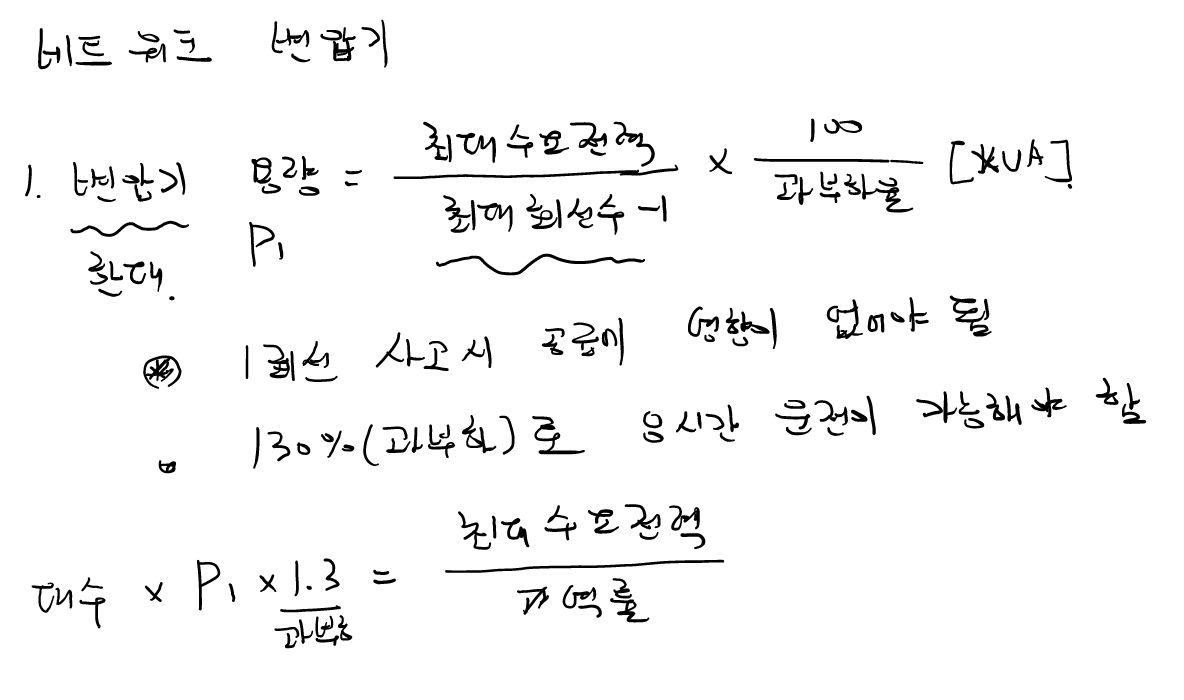 네트워크 변압기
1. 변압기 용량 = 최대수요전력 / 최대 회선수 -1 × 100 / 과부하율 [KVA]
한대. P1
1회선 사고시 공급에 영향이 없어야 됨
130%(과부하)로 8시간 운전이 가능해야 함
대수 × P1 × 1.3 = 최대수요전력 / 역률
과부하